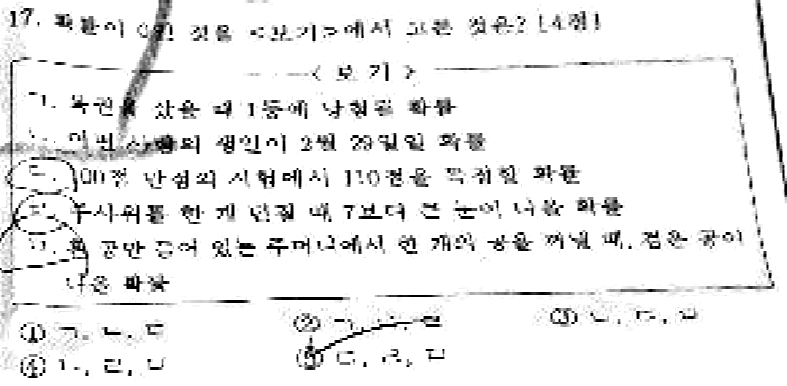 17. 확률이 0인 것을 <보기>에서 고른 것은? [4점]
< 보 기 >
ㄱ. 복권을 샀을 때 1등에 당첨될 확률
ㄴ. 어떤 사람의 생일이 2월 29일일 확률
ㄷ. 100점 만점의 시험에서 110점을 득점할 확률
ㄹ. 주사위를 한 개 던질 때 7보다 큰 눈이 나올 확률
ㅁ. 흰 공만 들어 있는 주머니에서 한 개의 공을 꺼낼 때, 검은 공이
나올 확률
① ㄱ, ㄴ, ㄷ
② ㄱ, ㄹ
③ ㄴ, ㄷ, ㄹ
④ ㄴ, ㄹ, ㅁ
⑤ ㄷ, ㄹ, ㅁ